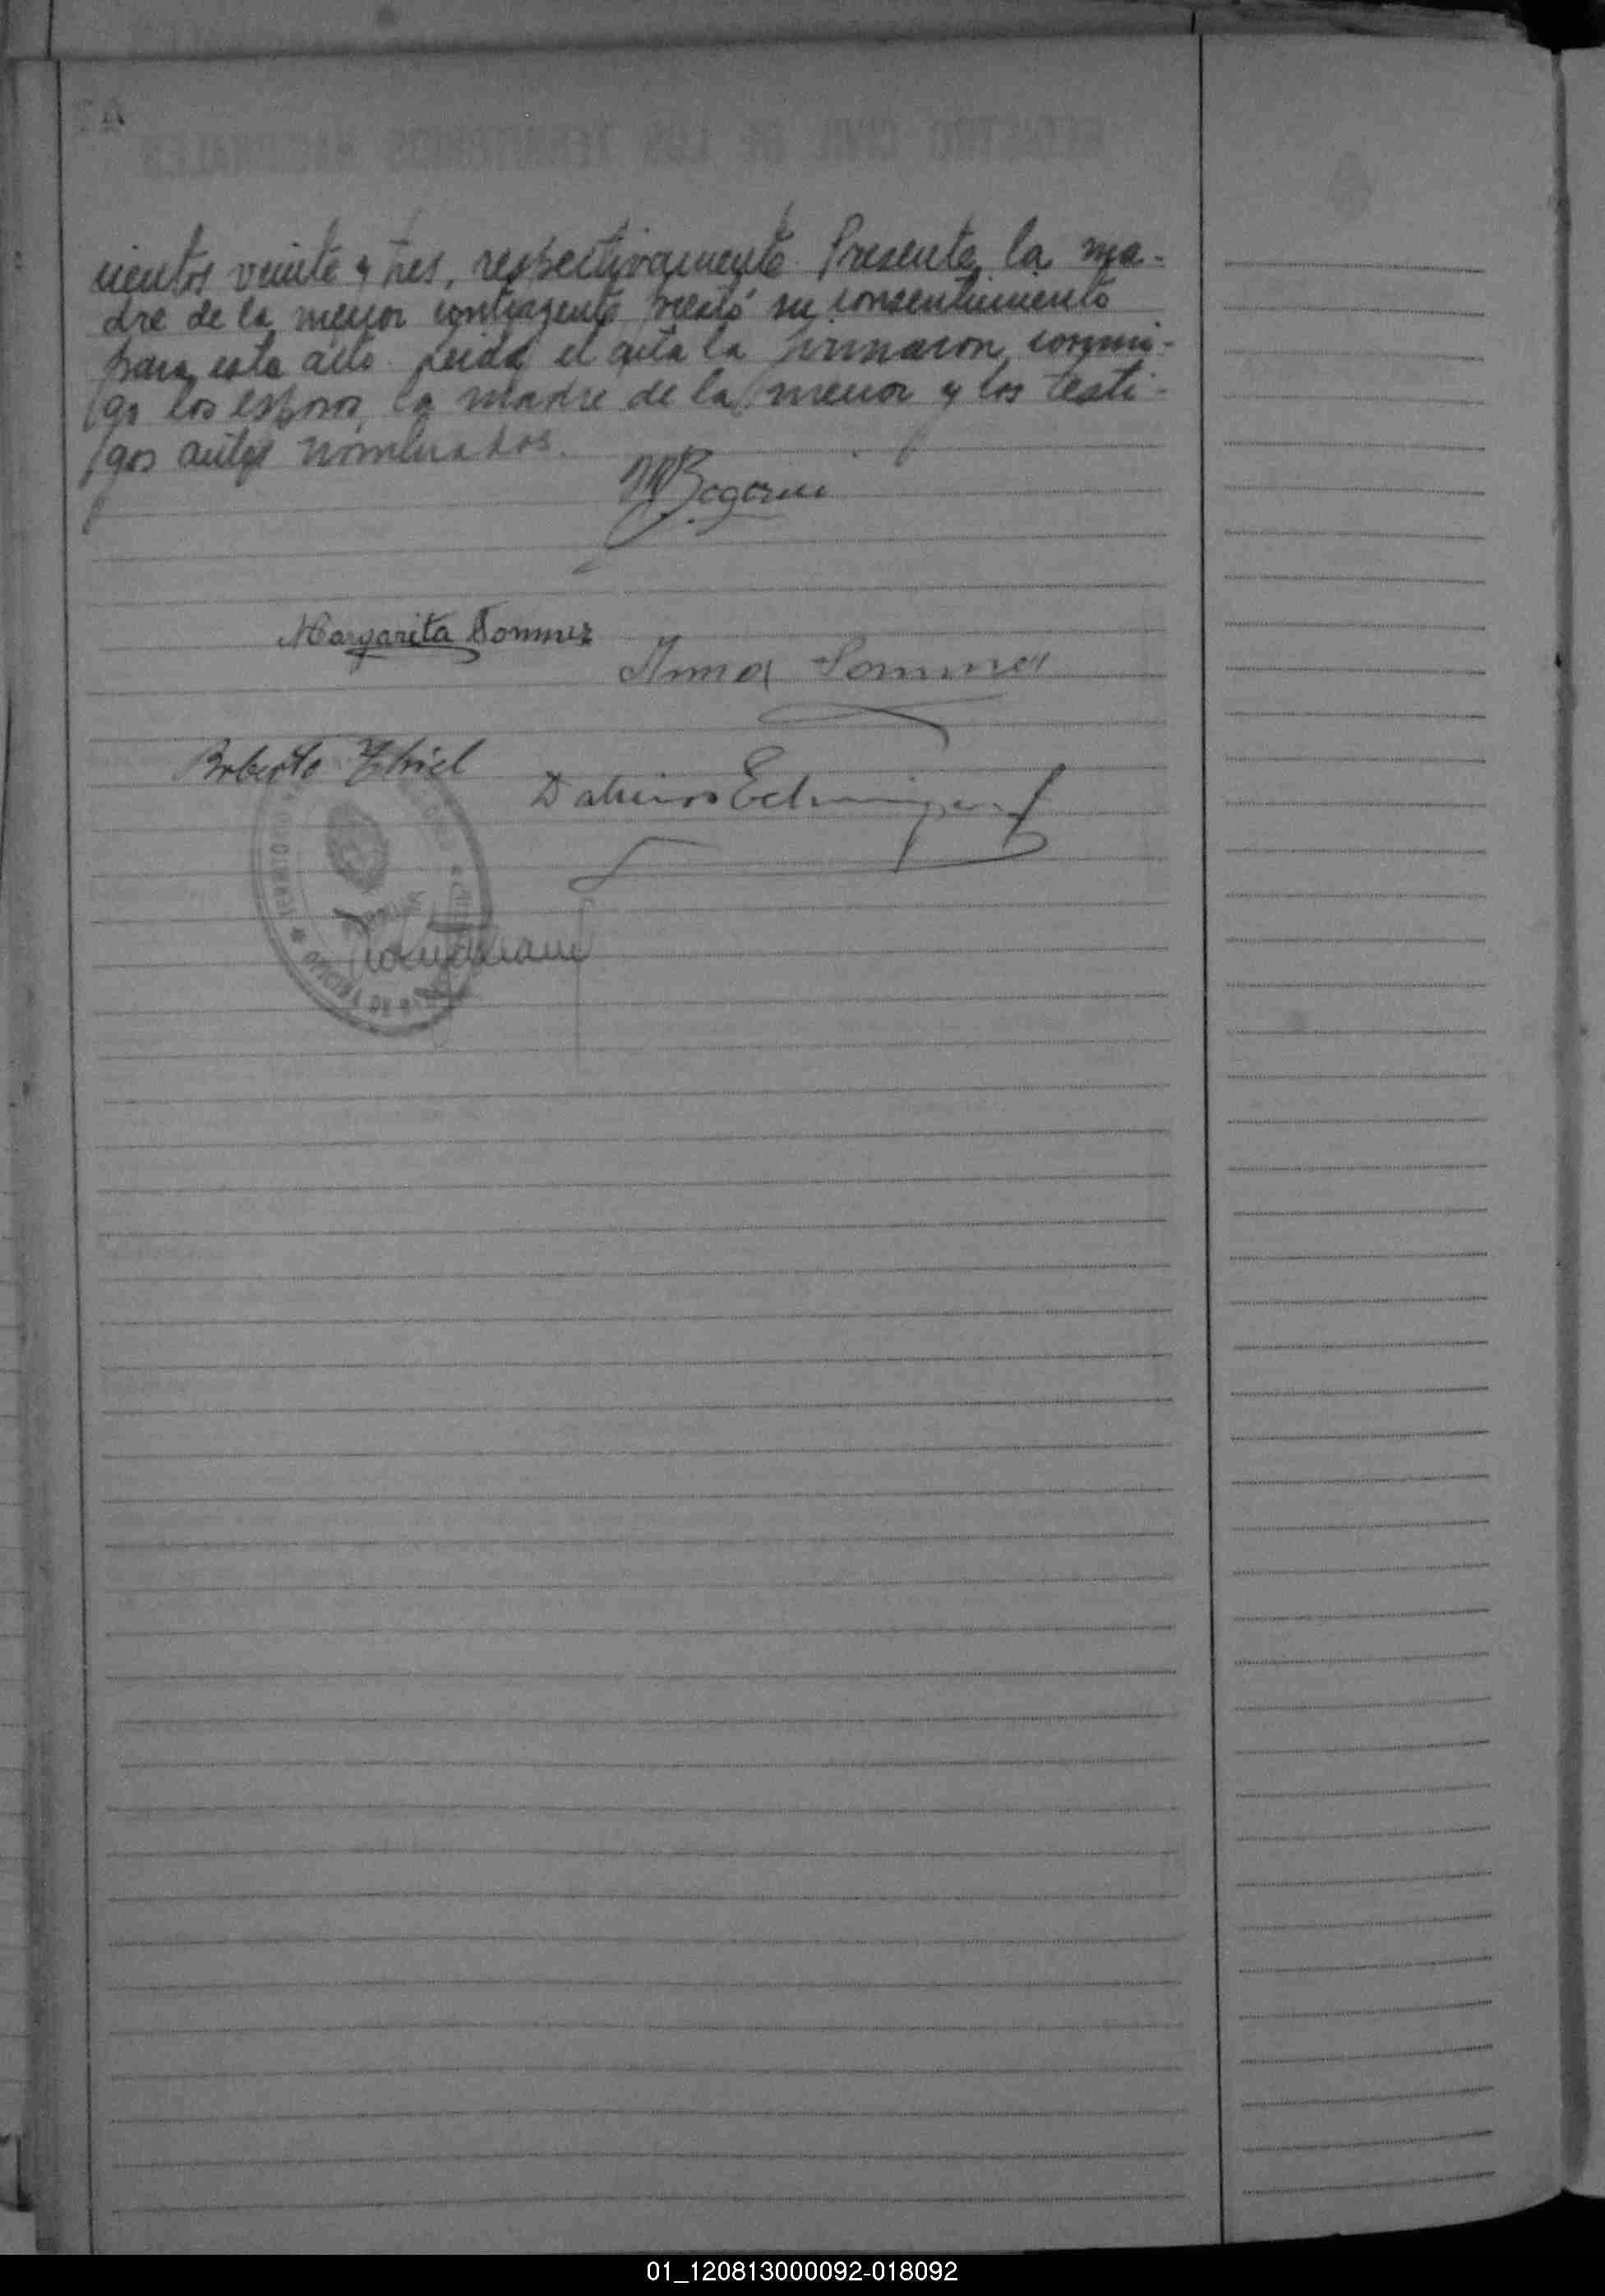 cientos veinte y tres, respectivamente. Presente, la ma-
dre de la menor contrayente prestó su consentimiento
para este acto. Leida el acta la firmaron, conmi-
go los esposos, la madre de la menor y los testi-
gos antes nombrados.
Margarita Sommer
Anna Sommer
Roberto Thiel
OFICINA DE
01_120813000092-018092